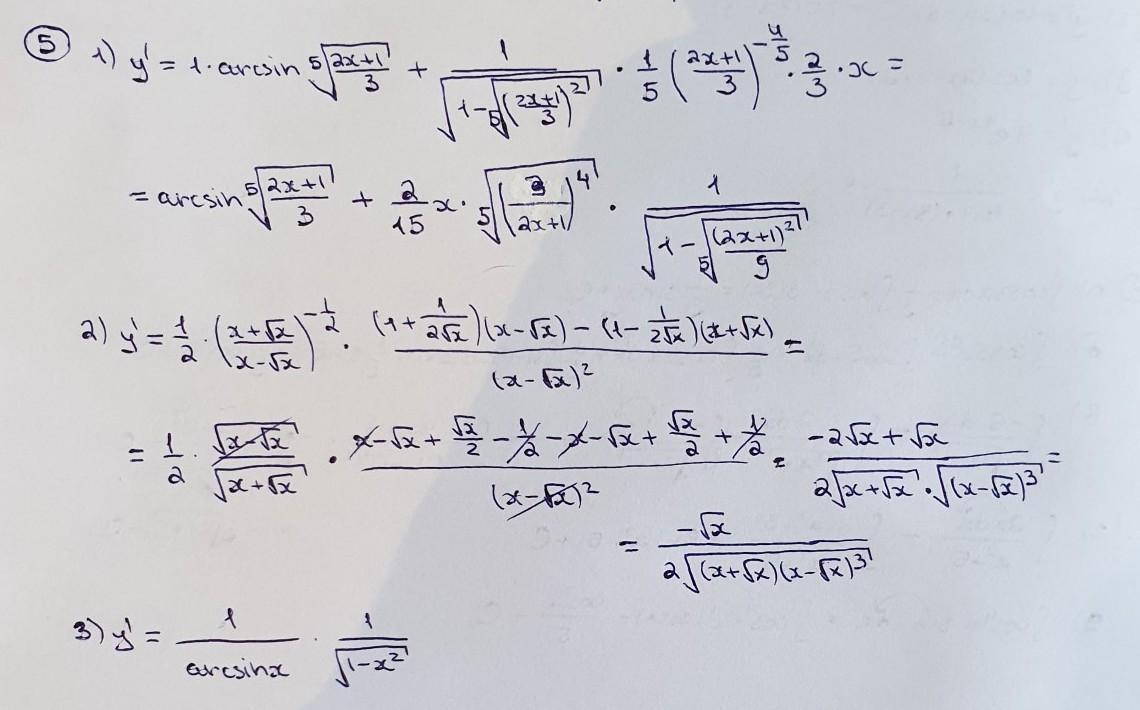 ⑤ 1) y' = 1 · arcsin ⁵√((2x+1)/3) + 1/√(1 - ⁵√(((2x+1)/3)²)) · 1/5 ((2x+1)/3)^(-4/5) · 2/3 · x =
= arcsin ⁵√((2x+1)/3) + 2/15 x · ⁵√((3/(2x+1))⁴) · 1/√(1 - ⁵√((2x+1)²/9))
2) y' = 1/2 · ((x+√x)/(x-√x))^(-1/2) · ((1 + 1/(2√x))(x-√x) - (1 - 1/(2√x))(x+√x))/(x-√x)² =
= 1/2 · √(x-√x)/√(x+√x) · (x - √x + √x/2 - 1/2 - x - √x + √x/2 + 1/2)/(x-√x)² = (-2√x + √x)/(2√(x+√x) · √((x-√x)³)) =
= -√x/(2√((x+√x)(x-√x)³))
3) y' = 1/arcsinx · 1/√(1-x²)